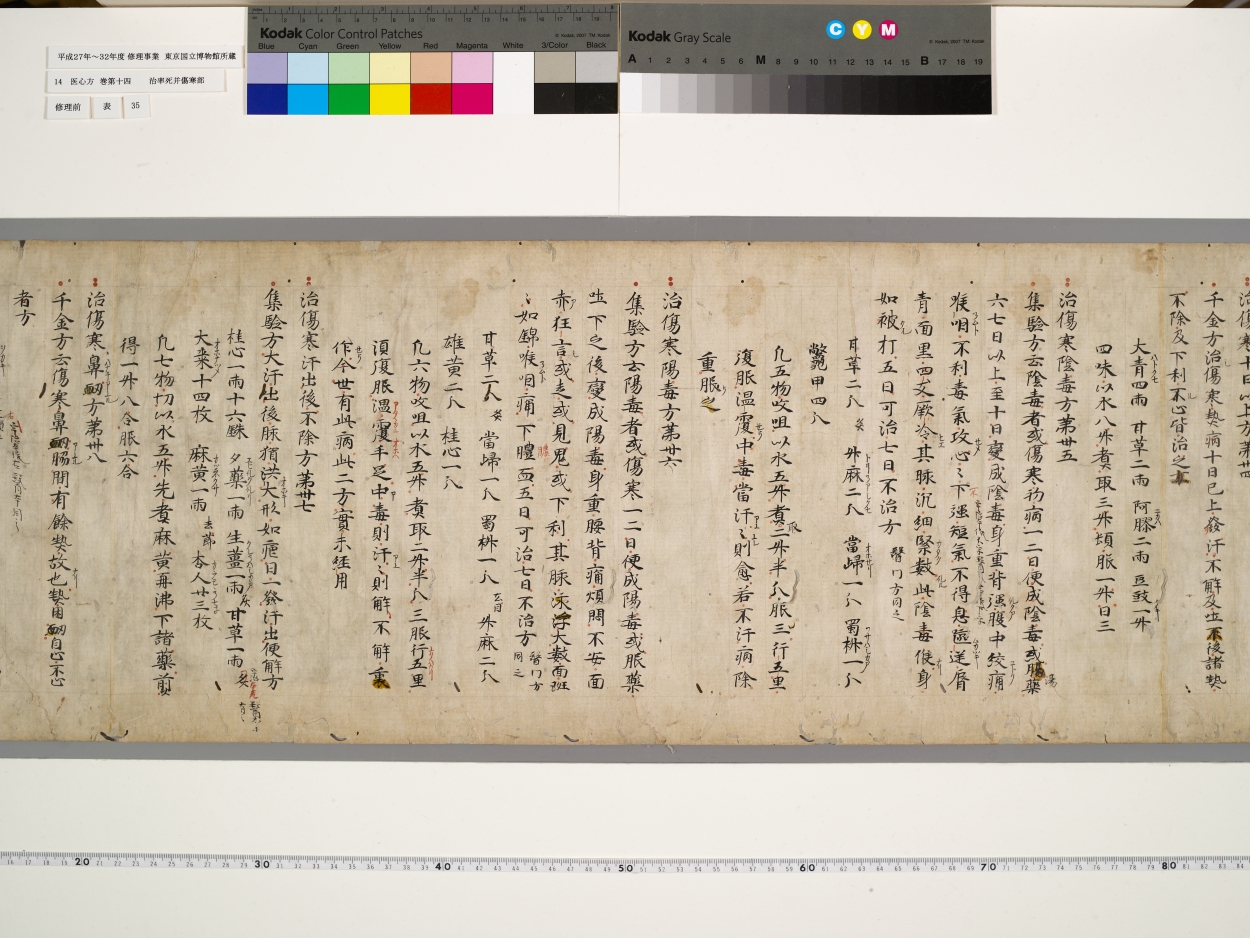 平成27年～32年度 修理事業 東京国立博物館所蔵
14 医心方 巻第十四 治卒死并傷寒部
修理前 表 35
Kodak Color Control Patches
© Kodak, 2007 TM: Kodak
Blue Cyan Green Yellow Red Magenta White 3/Color Black
Kodak Gray Scale
C Y M
© Kodak, 2007 TM: Kodak
A 1 2 3 4 5 6 M 8 9 10 11 12 13 14 15 B 17 18 19
治傷寒十日以上方第卅四
千金方治傷寒熱病十日已上發汗不解及吐下後諸熱
不除及下利不止皆治之方
大青四兩 甘草二兩 阿膠二兩 豆豉一升
四味以水八升煮取三升頓服一升日三
治傷寒陰毒方第卅五
集驗方云陰毒者或傷寒初病一二日便成陰毒或服湯藥
六七日以上至十日變成陰毒身重背强腹中絞痛
喉咽不利毒氣攻心心下强短氣不得息嘔逆脣
青面黑四支厥冷其脉沉細緊數此陰毒候身
如被打五日可治七日不治方
甘草二分 炙 升麻二分 當歸一分 蜀椒一分
鼈甲四分
凡五物㕮咀以水五升煮取二升分服三行五里
復服温覆中毒當汗汗則愈若不汗病除
重服之
治傷寒陽毒方第卅六
集驗方云陽毒者或傷寒一二日便成陽毒或服藥
吐下之後變成陽毒身重腰背痛煩悶不安面
赤狂言或走或見鬼或下利其脉浮大數面班
班如錦喉咽痛下膿血五日可治七日不治方 醫門方同之
甘草二分 炙 當歸一分 蜀椒一分 升麻二分
雄黄二分 桂心一分
凡六物㕮咀以水五升煮取二升半分三服行五里
須復服温覆手足中毒則汗汗則解不解重
作今世有此病此二方實未經用
治傷寒汗出後不除方第卅七
集驗方大汗出後脉猶洪大形如瘧日一發汗出便解方
桂心一兩十六銖 夕藥一兩 生薑一兩 甘草一兩 炙
大棗十四枚 麻黄一兩 去節 杏人廿三枚
凡七物切以水五升先煮麻黄再沸下諸藥煎
得一升八合服六合
治傷寒鼻衄方第卅八
千金方云傷寒鼻衄腸間有餘熱故也熱因衄自止不止
者方
20 30 40 50 60 70 80